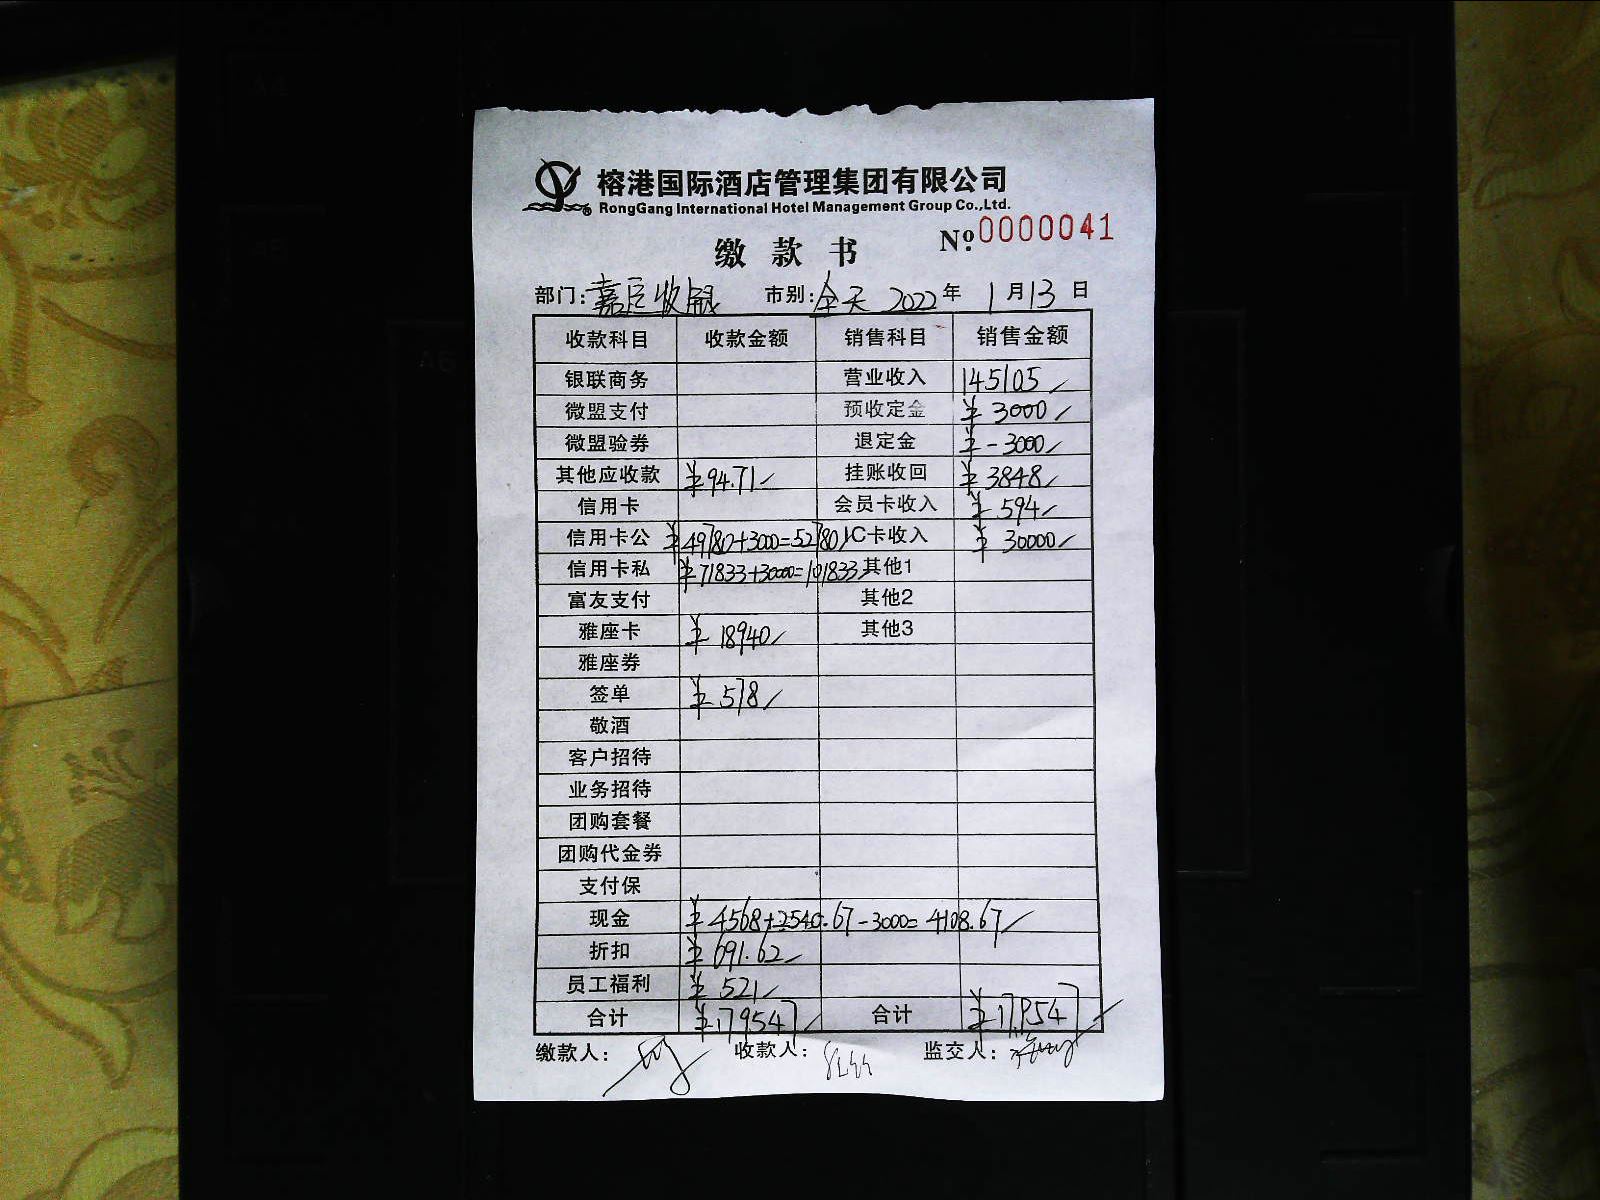 榕港国际酒店管理集团有限公司
RongGang International Hotel Management Group Co.,Ltd.
缴款书 №0000041
部门: 嘉 收银 市别: 全天 2022年 1月13日
收款科目 收款金额 销售科目 销售金额
银联商务 营业收入 145105
微盟支付 预收定金 ¥3000
微盟验券 退定金 ¥-3000
其他应收款 ¥94.71 挂账收回 ¥3848
信用卡 会员卡收入 ¥594
信用卡公 ¥49780+3000=52780 IC卡收入 ¥30000
信用卡私 ¥71833+30000=101833 其他1
富友支付 其他2
雅座卡 ¥18940 其他3
雅座券
签单 ¥578
敬酒
客户招待
业务招待
团购套餐
团购代金券
支付保
现金 ¥4568+2540.67-3000=4108.67
折扣 ¥691.62
员工福利 ¥521
合计 ¥179547 合计 ¥179547
缴款人: 收款人: 监交人:
A6